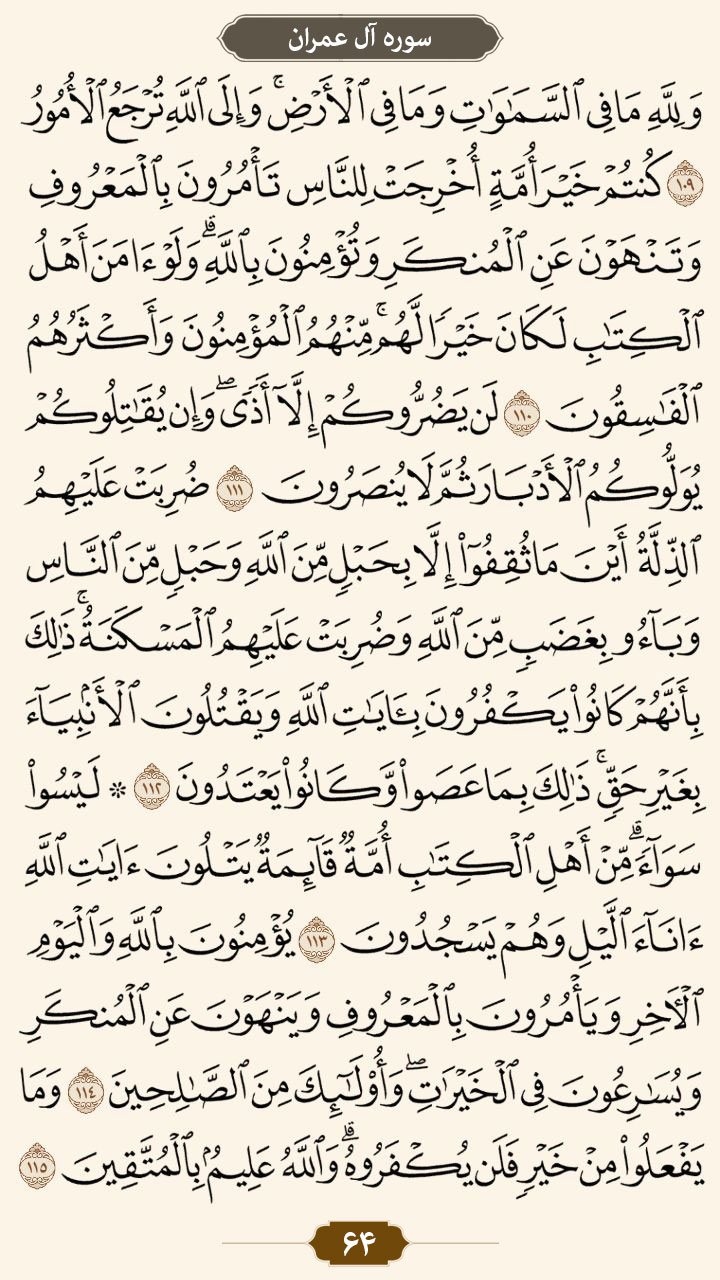 سوره آل عمران
وَلِلَّهِ مَا فِي ٱلسَّمَٰوَٰتِ وَمَا فِي ٱلۡأَرۡضِۚ وَإِلَى ٱللَّهِ تُرۡجَعُ ٱلۡأُمُورُ
١٠٩ كُنتُمۡ خَيۡرَ أُمَّةٍ أُخۡرِجَتۡ لِلنَّاسِ تَأۡمُرُونَ بِٱلۡمَعۡرُوفِ
وَتَنۡهَوۡنَ عَنِ ٱلۡمُنكَرِ وَتُؤۡمِنُونَ بِٱللَّهِۗ وَلَوۡ ءَامَنَ أَهۡلُ
ٱلۡكِتَٰبِ لَكَانَ خَيۡرٗا لَّهُمۚ مِّنۡهُمُ ٱلۡمُؤۡمِنُونَ وَأَكۡثَرُهُمُ
ٱلۡفَٰسِقُونَ ١١٠ لَن يَضُرُّوكُمۡ إِلَّآ أَذٗىۖ وَإِن يُقَٰتِلُوكُمۡ
يُوَلُّوكُمُ ٱلۡأَدۡبَارَ ثُمَّ لَا يُنصَرُونَ ١١١ ضُرِبَتۡ عَلَيۡهِمُ
ٱلذِّلَّةُ أَيۡنَ مَا ثُقِفُوٓاْ إِلَّا بِحَبۡلٖ مِّنَ ٱللَّهِ وَحَبۡلٖ مِّنَ ٱلنَّاسِ
وَبَآءُو بِغَضَبٖ مِّنَ ٱللَّهِ وَضُرِبَتۡ عَلَيۡهِمُ ٱلۡمَسۡكَنَةُۚ ذَٰلِكَ
بِأَنَّهُمۡ كَانُواْ يَكۡفُرُونَ بِـَٔايَٰتِ ٱللَّهِ وَيَقۡتُلُونَ ٱلۡأَنۢبِيَآءَ
بِغَيۡرِ حَقّٖۚ ذَٰلِكَ بِمَا عَصَواْ وَّكَانُواْ يَعۡتَدُونَ ١١٢ * لَيۡسُواْ
سَوَآءٗۗ مِّنۡ أَهۡلِ ٱلۡكِتَٰبِ أُمَّةٞ قَآئِمَةٞ يَتۡلُونَ ءَايَٰتِ ٱللَّهِ
ءَانَآءَ ٱلَّيۡلِ وَهُمۡ يَسۡجُدُونَ ١١٣ يُؤۡمِنُونَ بِٱللَّهِ وَٱلۡيَوۡمِ
ٱلۡأٓخِرِ وَيَأۡمُرُونَ بِٱلۡمَعۡرُوفِ وَيَنۡهَوۡنَ عَنِ ٱلۡمُنكَرِ
وَيُسَٰرِعُونَ فِي ٱلۡخَيۡرَٰتِۖ وَأُوْلَٰٓئِكَ مِنَ ٱلصَّٰلِحِينَ ١١٤ وَمَا
يَفۡعَلُواْ مِنۡ خَيۡرٖ فَلَن يُكۡفَرُوهُۗ وَٱللَّهُ عَلِيمُۢ بِٱلۡمُتَّقِينَ ١١٥
۶۴